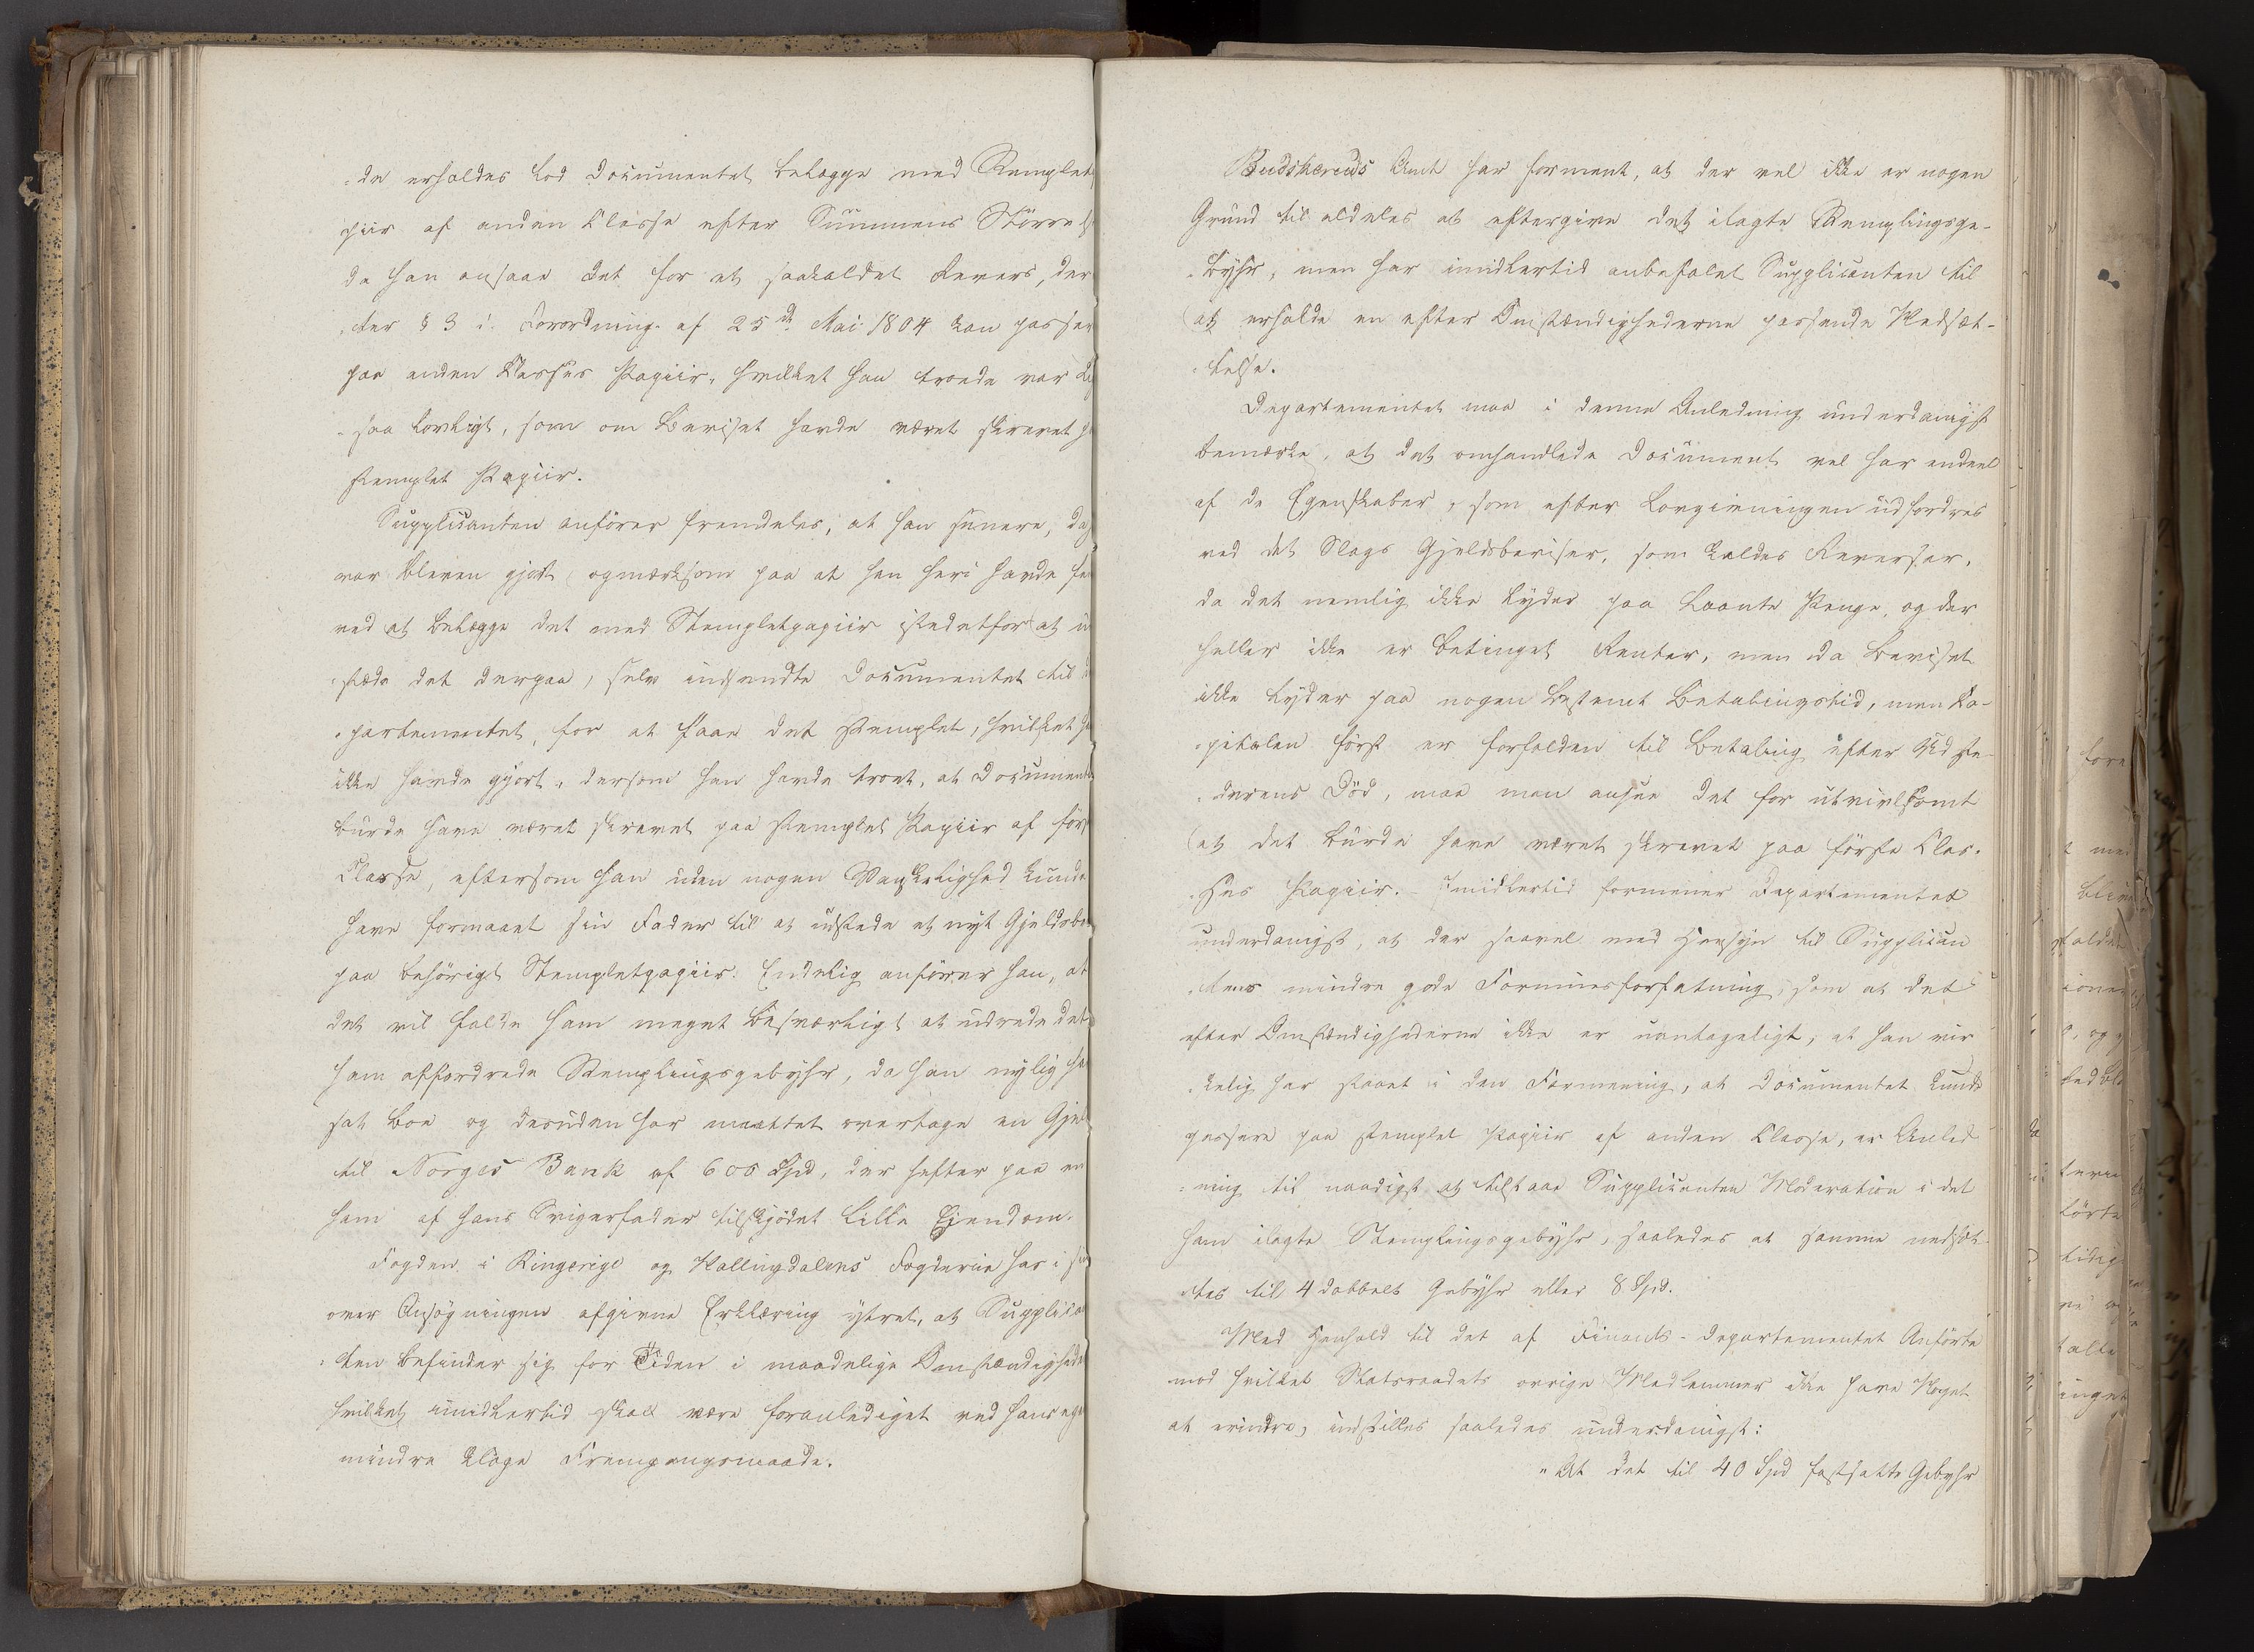 "de erholdes lod Documentet belægge med Stemplet
piir af anden Classe efter Summens Större
da han ansaae det for et saakaldet Revers, der
"ter § 3 i Forordning af 25de Mai 1804 kan passer
paa anden Classes Papiir, hvilket han troede var
"saa lovligt, som om Beviset havde været skrevet
stemplet Papiir.
Supplicanten anförer fremdeles, at han senere, da
var bleven gjort opmærksom paa at han heri havde
ved at belægge det med Stempletpapiir istedetfor at
"stæde det derpaa, selv indsendte Documentet til
"partementet, for at faae det stemplet, hvilket
ikke havde gjort, dersom han havde troet, at Document
burde have været skrevet paa stemplet Papiir af för
Classe, eftersom han uden nogen Vanskelighed kunde
have formaaet sin Fader til at udstede et nyt Gjeldsbe
paa behörigt Stempletpapiir. Endelig anförer han, at
det vil falde ham meget besværligt at udrede det
ham affordrede Stemplingsgebyhr, da han nylig
sat Boe og desuden har maattet overtage en Gje
til Norges Bank af 600 Spd, der hefter paa en
ham af hans Svigerfader tilskjödet lille Eiendom.
Fogden i Ringerige og Hallingdalens Fogderie har i
over Ansögningen afgivne Erklæring yttret, at Supplica
"ten befinder sig for Tiden i maadelige Omstændighede
hvilket imidlertid skal være foranlediget ved hans eg
mindre kloge Fremgangsmaade.
Budskeruds Amt har forment, at der vel ikke er nogen
Grund til aldeles at eftergive det ilagte Stemplingsge-
"byhr, men har imidlertid anbefalet Supplicanten til
at erholde en efter Omstændighederne passende Nedsæt-
"telse.
Departementet maa i denne Anledning underdanigst
bemærke, at det omhandlede Document vel har endeel
af de Egenskaber, som efter Lovgivningen udfordres
ved det Slags Gjeldsbeviser, som kaldes Reverser,
da det nemlig ikke lyder paa laante Penge, og der
heller ikke er betinget Renter, men da Beviset
ikke lyder paa nogen bestemt Betalingstid, men Ka-
"pitalen först er forfalden til Betaling efter Udste-
"derens Död, maa man ansee det for utvivlsomt
at det burde have været skrevet paa förste Clas-
"ses Papiir. - Imidlertid formener Departementet
underdanigst, at der saavel med Hensyn til Supplican
"tens mindre gode Formuesforfatning, som at det
efter Omstændighederne ikke er uantageligt, at han vir
"kelig har staaet i den Formening, at Documentet kunde
passere paa stemplet Papiir af anden Classe, er Anled
"ning til naadigst at tilstaae Supplicanten Moderation i det
ham ilagte Stemplingsgebyhr, saaledes at samme nedsæt-
"tes til 4 dobbelt Gebyhr eller 8 Spd.
Med Henhold til det af Finants-Departementet Anförte
mod hvilket Statsraadets övrige Medlemmer ikke have Noget
at erindre, indstilles saaledes underdanigst:
"At det til 40 Spd fastsatte Gebyhr